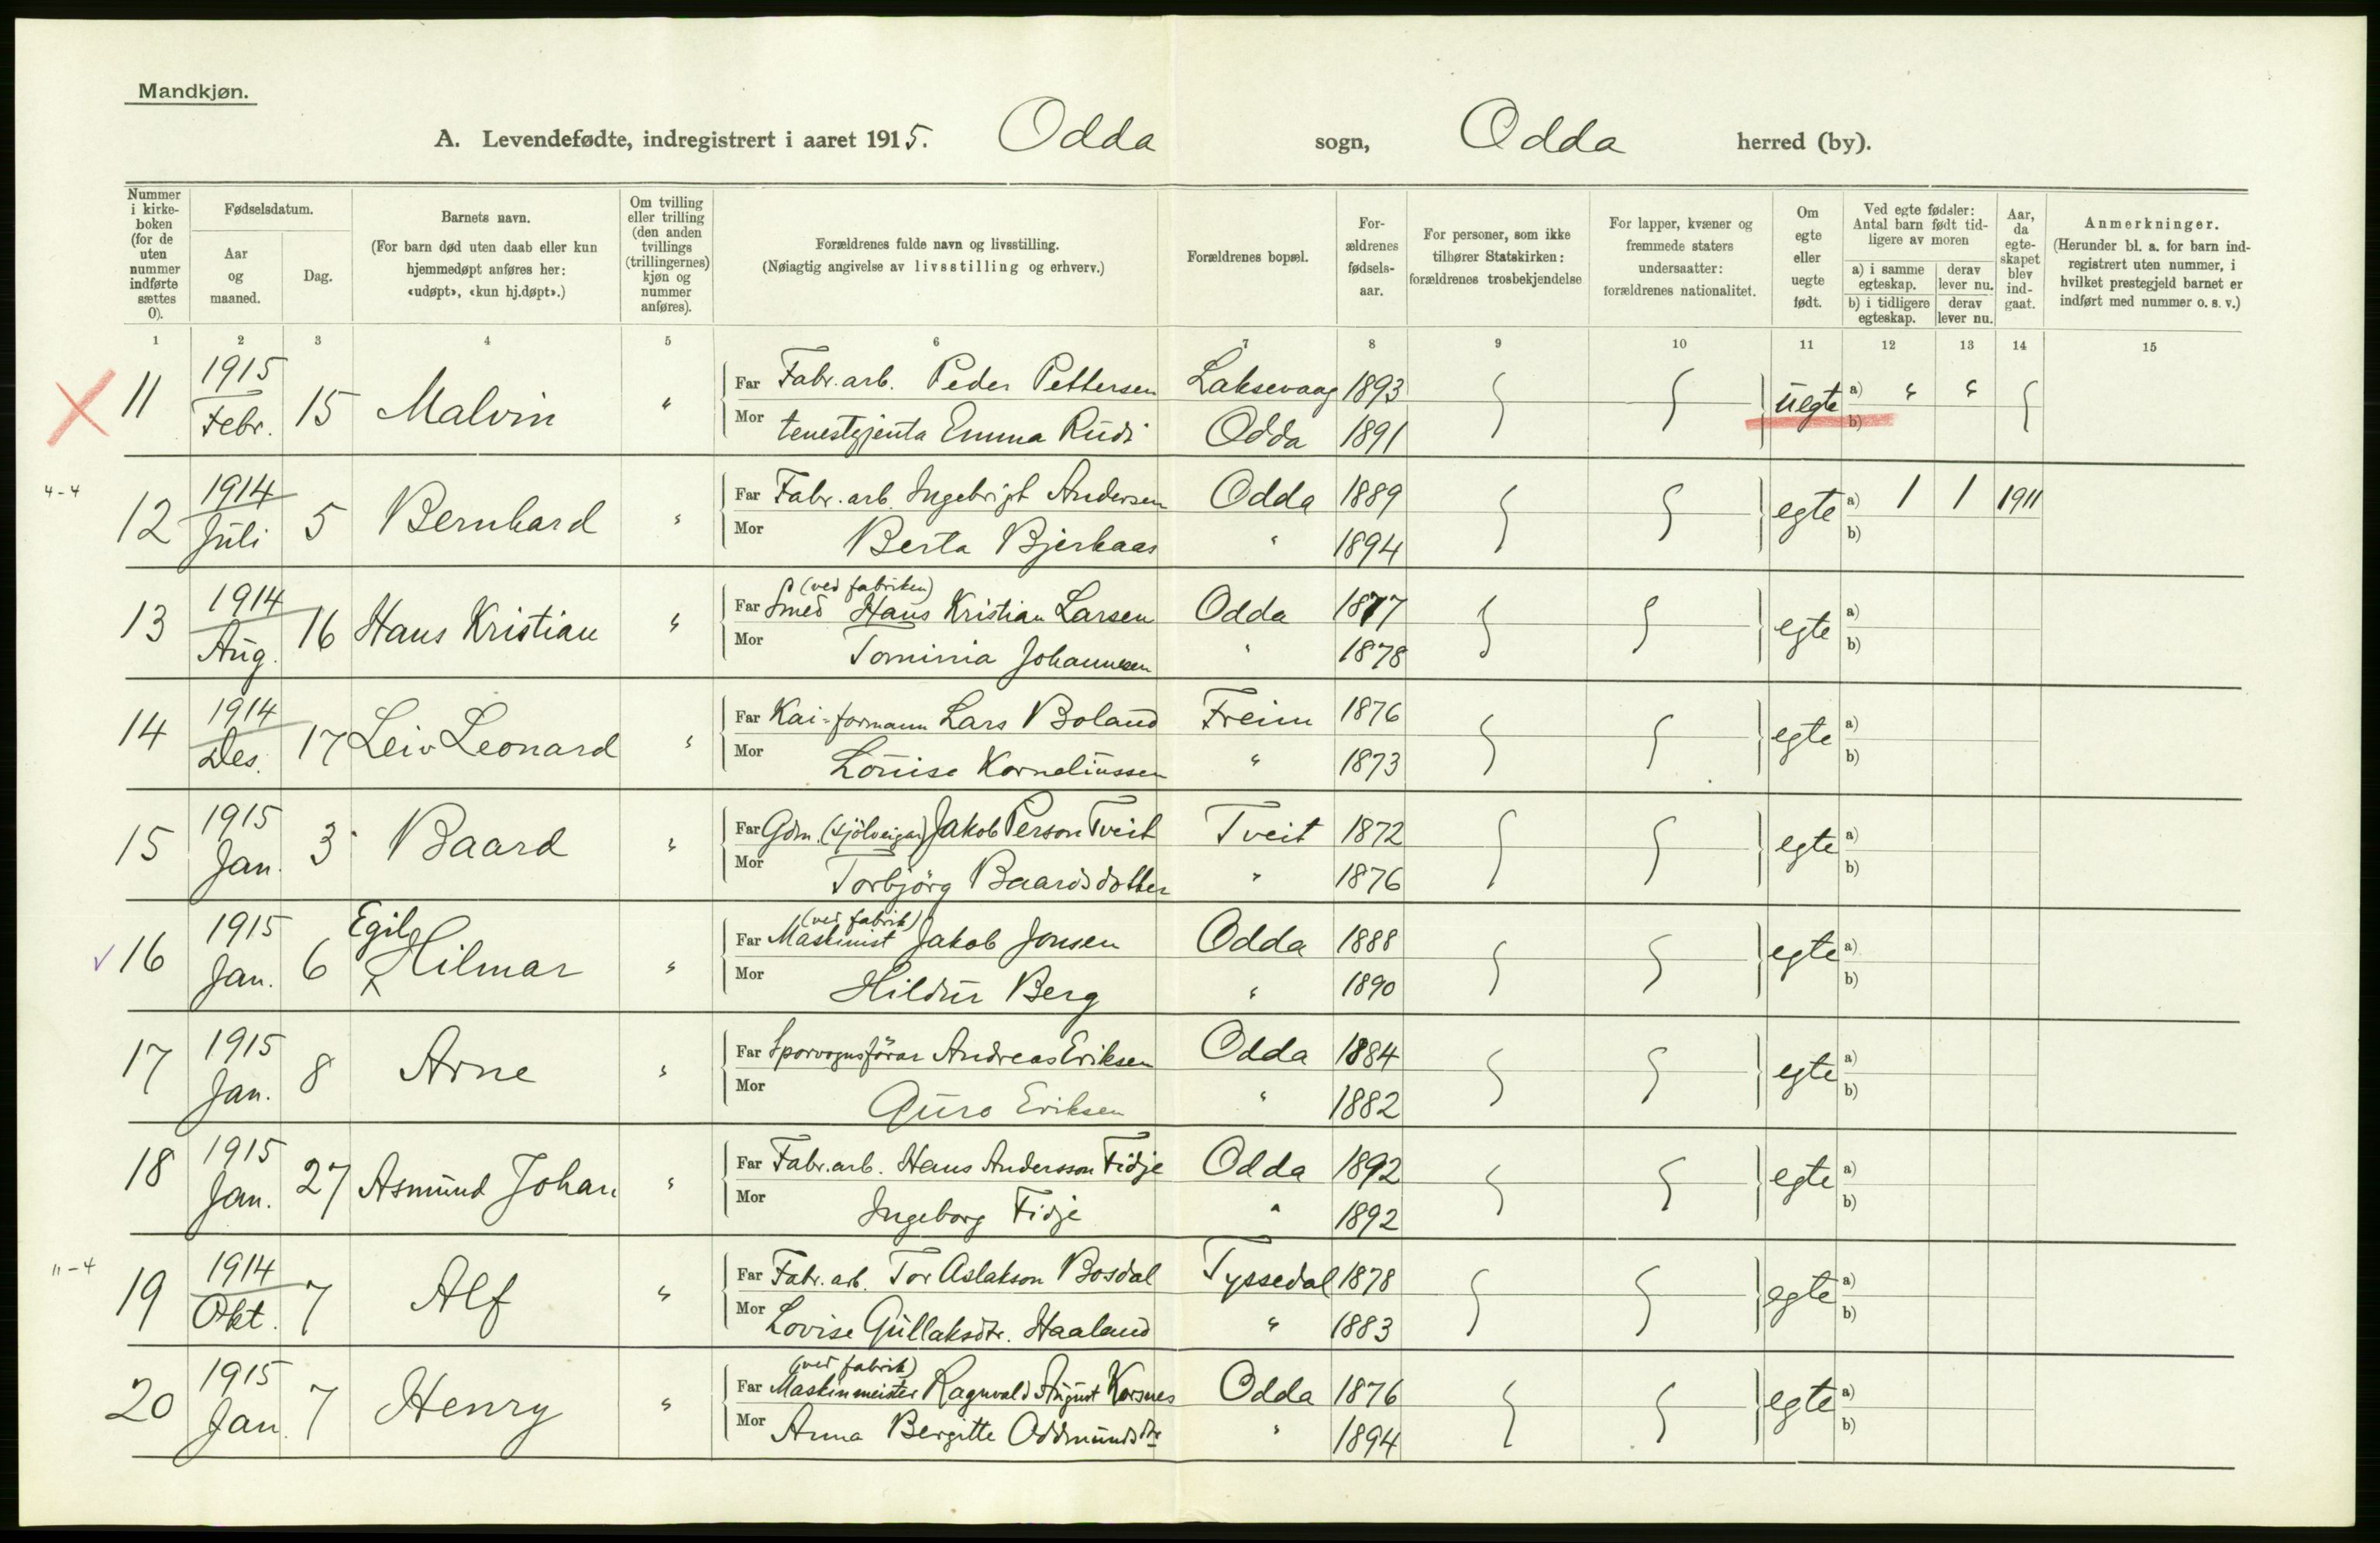 Mandkjøn.
A. Levendefødte, indregistrert i aaret 1915. Odda sogn, Odda herred (by).
Nummer i kirke-boken (for de uten nummer indførte sættes 0).
Fødselsdatum.
Aar og maaned.
Dag.
Barnets navn.
(For barn død uten daab eller kun hjemmedøpt anføres her: «udøpt», «kun hj.døpt».)
Om tvilling eller trilling (den anden tvillings (trillingernes) kjøn og nummer anføres).
Forældrenes fulde navn og livsstilling.
(Nøiagtig angivelse av livsstilling og erhverv.)
Forældrenes bopæl.
For-ældrenes fødsels-aar.
For personer, som ikke tilhører Statskirken: forældrenes trosbekjendelse
For lapper, kvæner og fremmede staters undersaatter: forældrenes nationalitet.
Om egte eller uegte født.
Ved egte fødsler: Antal barn født tid-ligere av moren
a) i samme egteskap.
b) i tidligere egteskap.
derav lever nu.
derav lever nu.
Aar, da egte-skapet blev ind-gaat.
Anmerkninger.
(Herunder bl. a. for barn ind-registrert uten nummer, i hvilket prestegjeld barnet er indført med nummer o. s. v.)
1 2 3 4 5 6 7 8 9 10 11 12 13 14 15
11 1915 Febr. 15 Malvin " Far Fabr. arb. Peder Pettersen Laksevaag 1893 uegte a) " "
Mor tenestgjenta Emma Rudi Odda 1891 b)
4-4
12 1914 Juli 5 Bernhard " Far Fabr. arb. Ingebrigt Andersen Odda 1889 egte a) 1 1 1911
Mor Berta Bjerkaas " 1894 b)
13 1914 Aug. 16 Hans Kristian " Far Smed (ved fabriken) Hans Kristian Larsen Odda 1877 egte a)
Mor Tominia Johannesen " 1878 b)
14 1914 Des. 17 Leiv Leonard " Far Kai-formann Lars Boland Freim 1876 egte a)
Mor Louise Korneliussen " 1873 b)
15 1915 Jan. 3 Baard " Far Gdm. (sjölveigar) Jakob Person Tveit Tveit 1872 egte a)
Mor Torbjörg Baardsdotter " 1876 b)
16 1915 Jan. 6 Egil Hilmar " Far Maskinist (ved fabrik) Jakob Jonsen Odda 1888 egte a)
Mor Hildur Berg " 1890 b)
17 1915 Jan. 8 Arne " Far Sporvognsförar Andreas Eriksen Odda 1884 egte a)
Mor Guro Eriksen " 1882 b)
18 1915 Jan. 27 Asmund Johan " Far Fabr. arb. Hans Andersson Fidje Odda 1892 egte a)
Mor Ingeborg Fidje " 1892 b)
11-4
19 1914 Okt. 7 Alf " Far Fabr. arb. Tor Aslakson Bosdal Tyssedal 1878 egte a)
Mor Lovise Gullaksdtr. Haaland " 1883 b)
20 1915 Jan. 7 Henry " Far Maskinmeister (ved fabrik) Ragnvald August Korsnes Odda 1876 egte a)
Mor Anna Bergitte Oddmundsdtr " 1894 b)